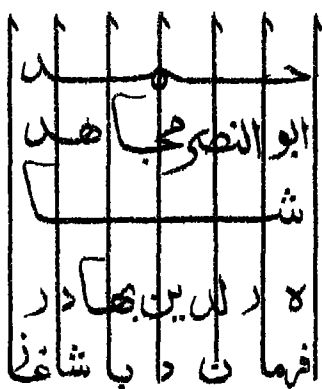 حمد
ابو النصر مجا هد
شا
ه ر لدین بها در
فرما ن د با شا